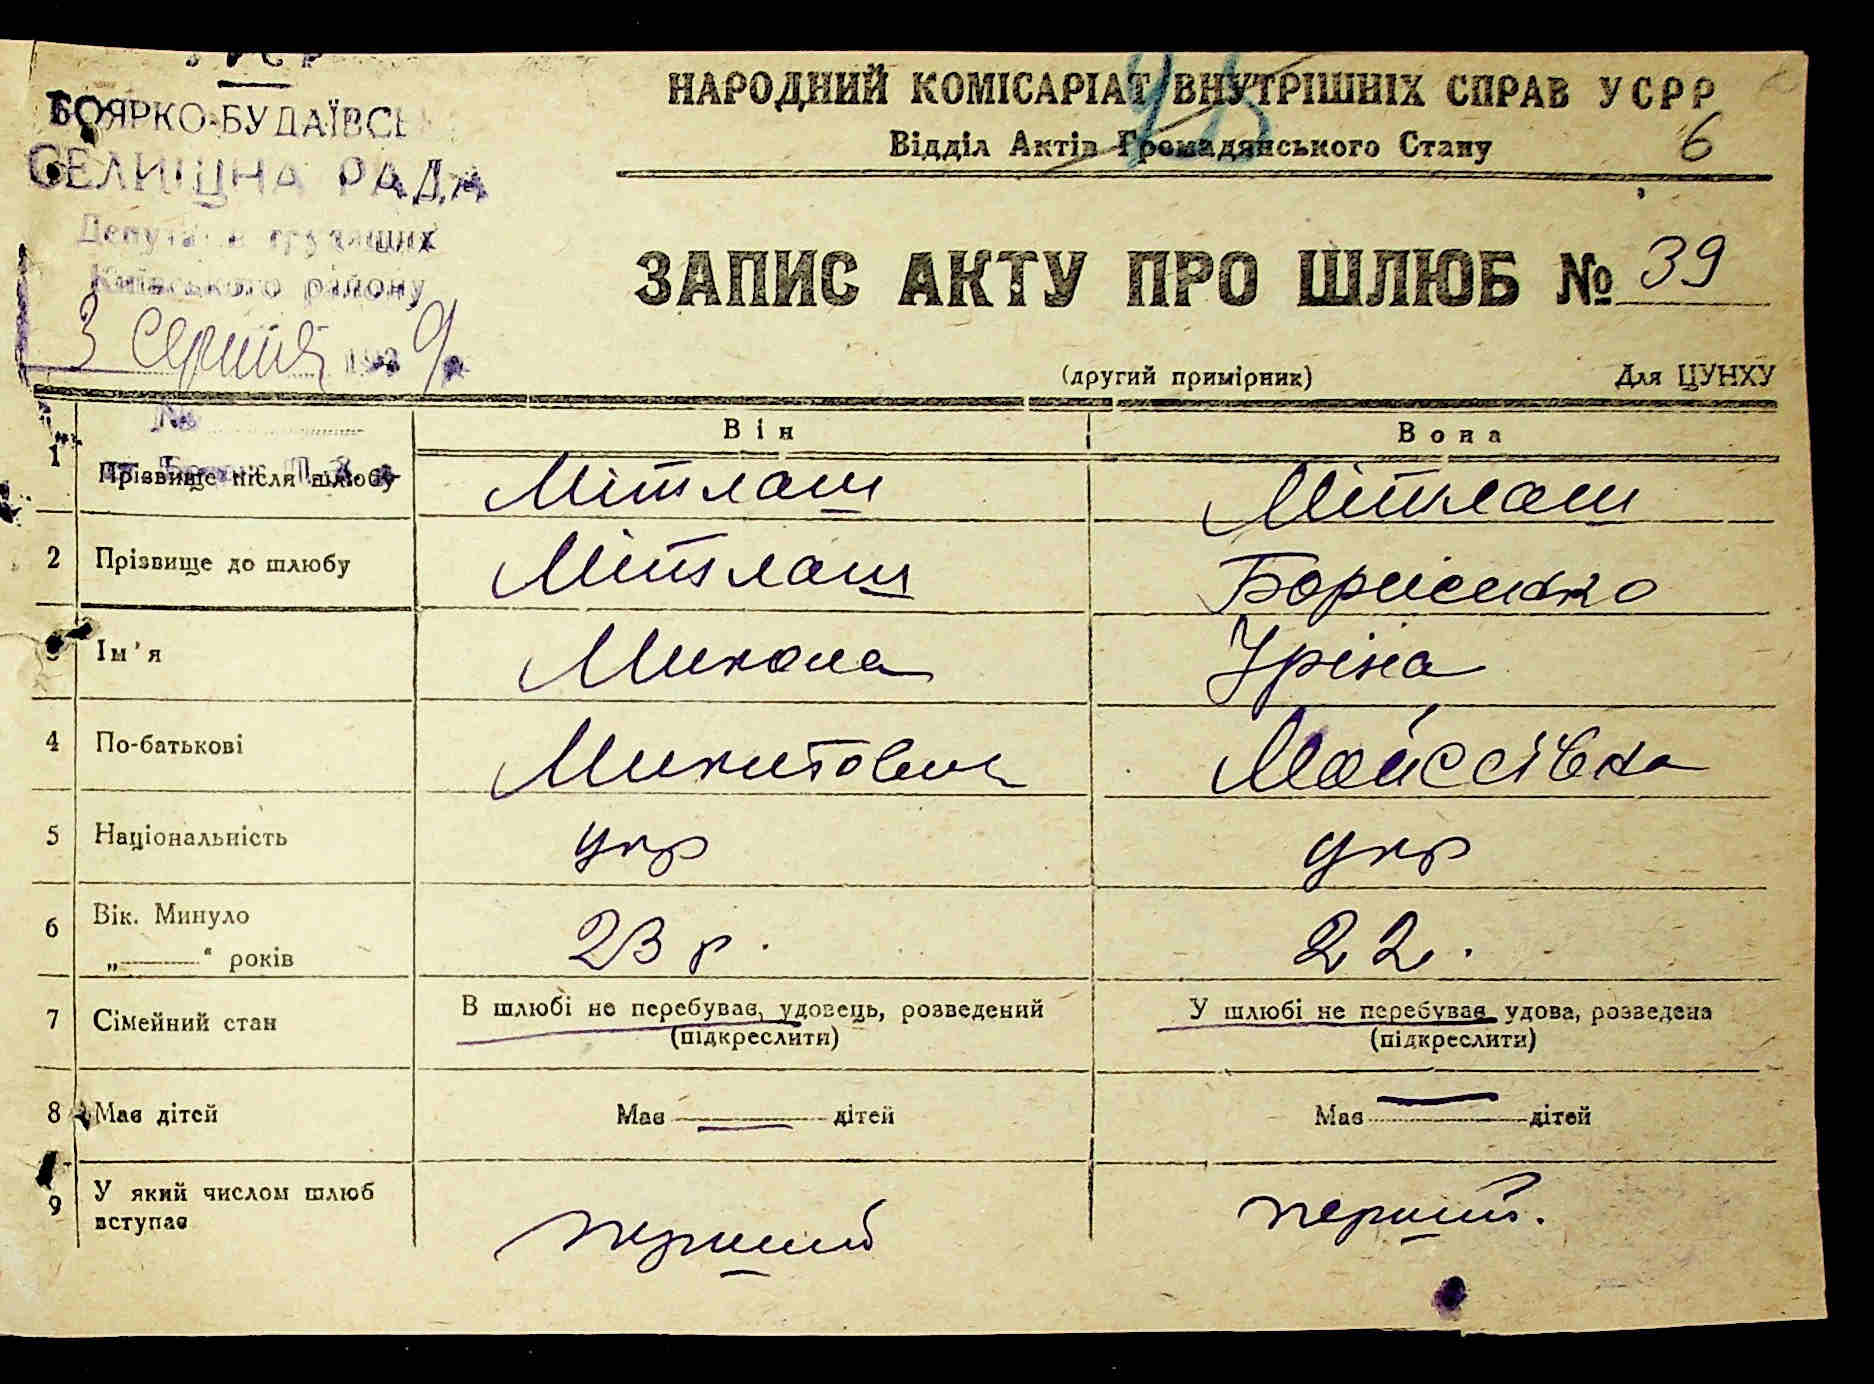 УСРР
БОЯРКО-БУДАЇВСЬ
СЕЛИЩНА РАДА
Депутатів трудящих
Київського району
3 серпня 1939 р.
№
НАРОДНИЙ КОМІСАРІАТ ВНУТРІШНІХ СПРАВ УСРР
Відділ Актів Громадянського Стану
6
ЗАПИС АКТУ ПРО ШЛЮБ № 39
(другий примірник) Для ЦУНХУ
Він Вона
1 Прізвище після шлюбу Мітлаш Мітлаш
2 Прізвище до шлюбу Мітлаш Борисенко
3 Ім'я Микола Іріна
4 По-батькові Микитович Мойсеївна
5 Національність укр укр
6 Вік. Минуло
„———“ років 23 р. 22.
7 Сімейний стан В шлюбі не перебуває, удовець, розведений У шлюбі не перебуває удова, розведена
(підкреслити) (підкреслити)
8 Має дітей Має — дітей Має — дітей
9 У який числом шлюб
вступає перший перший.